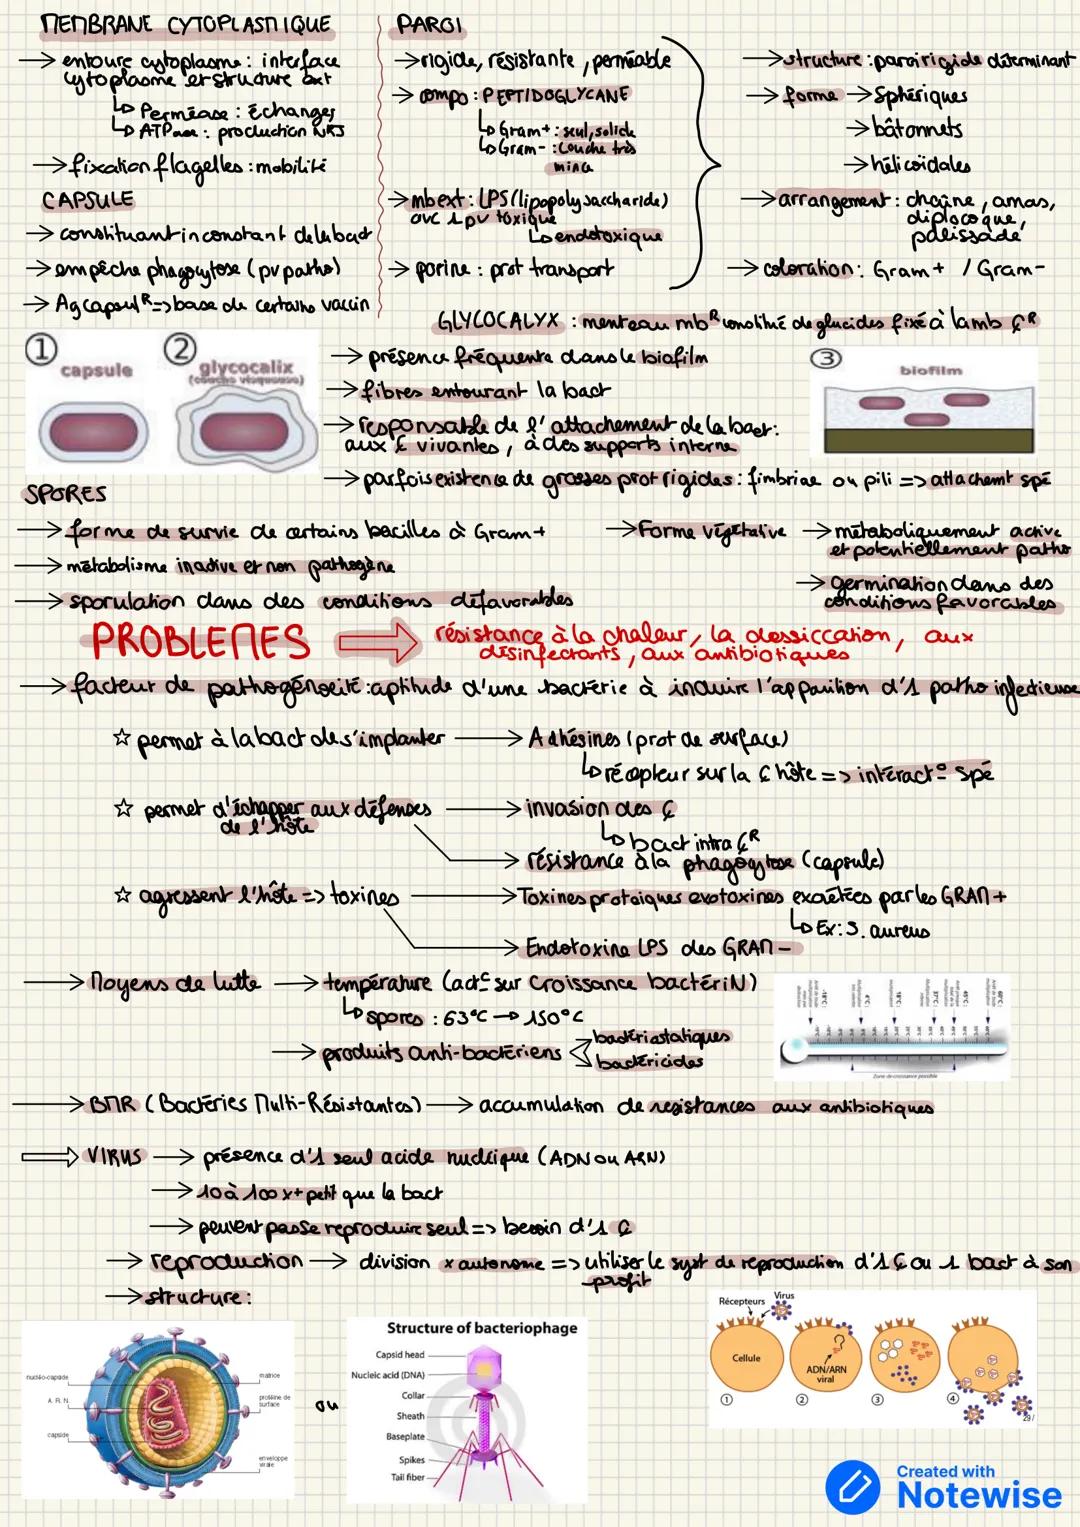 MEMBRANE CYTOPLASMIQUE
→ entoure cytoplasme : interface
cytoplasme et structure ext
↳ Perméase : échanges
↳ ATPase : production NRJ
→ fixation flagelles : mobilité
CAPSULE
→ constituant inconstant de la bact
→ empêche phagocytose (pv patho)
→ Ag capsulR => base de certains vaccin
PAROI
→ rigide, résistante, perméable
→ compo : PEPTIDOGLYCANE
↳ Gram+ : seul, solide
↳ Gram- : couche très
mince
→ mb ext : LPS (lipopolysaccharide)
avc 1 pv toxique
↳ endotoxique
→ porine : prot transport
→ structure : paroi rigide déterminant
→ forme → Sphériques
→ bâtonnets
→ hélicoïdales
→ arrangement : chaîne, amas,
diplocoque,
palissade
→ coloration : Gram+ / Gram-
GLYCOCALYX : menteau mbR constitué de glucides fixé à la mb çR
→ présence fréquente dans le biofilm
→ fibres entourant la bact
→ responsable de l'attachement de la bact :
aux ç vivantes, à des supports interne
→ parfois existence de grosses prot rigides : fimbriae ou pili => attachemt spé
1
capsule
2
glycocalix
(couche visqueuse)
3
biofilm
SPORES
→ forme de survie de certains bacilles à Gram+
→ métabolisme inactive et non pathogène
→ sporulation dans des conditions défavorables
→ Forme végétative → métaboliquement active
et potentiellement patho
→ germination dans des
conditions favorables
PROBLEMES ⇒ résistance à la chaleur, la dessiccation, aux
désinfectants, aux antibiotiques
→ facteur de pathogénoéité : aptitude d'une bactérie à induire l'apparition d'1 patho infectieuse
☆ permet à la bact de s'implanter → Adhésines (prot de surface)
↳ récepteur sur la ç hôte => interact° spé
☆ permet d'échapper aux défenses
de l'hôte
→ invasion des ç
↳ bact intra çR
→ résistance à la phagocytose (capsule)
☆ agressent l'hôte => toxines → Toxines protéiques exotoxines excrétées par les GRAM+
↳ Ex : S. aureus
→ Endotoxine LPS des GRAM-
→ Moyens de lutte → température (act° sur croissance bactériN)
↳ spores : 63°C → 150°C
→ produits anti-bactériens
bactériostatiques
bactéricides
Zone de croissance possible
→ BMR (Bactéries Multi-Résistantes) → accumulation de resistances aux antibiotiques
⇒ VIRUS → présence d'1 seul acide nucléique (ADN ou ARN)
→ 10 à 100 x + petit que la bact
→ peuvent pas se reproduire seul => besoin d'1 ç
→ reproduction → division x autonome => utiliser le syst de reproduction d'1 ç ou 1 bact à son
profit
→ structure :
nucléo-capside
A. R. N.
capside
matrice
protéine de
surface
enveloppe
virale
ou
Structure of bacteriophage
Capsid head
Nucleic acid (DNA)
Collar
Sheath
Baseplate
Spikes
Tail fiber
Récepteurs
Virus
Cellule
ADN/ARN
viral
1
2
3
4
29/
Created with
Notewise